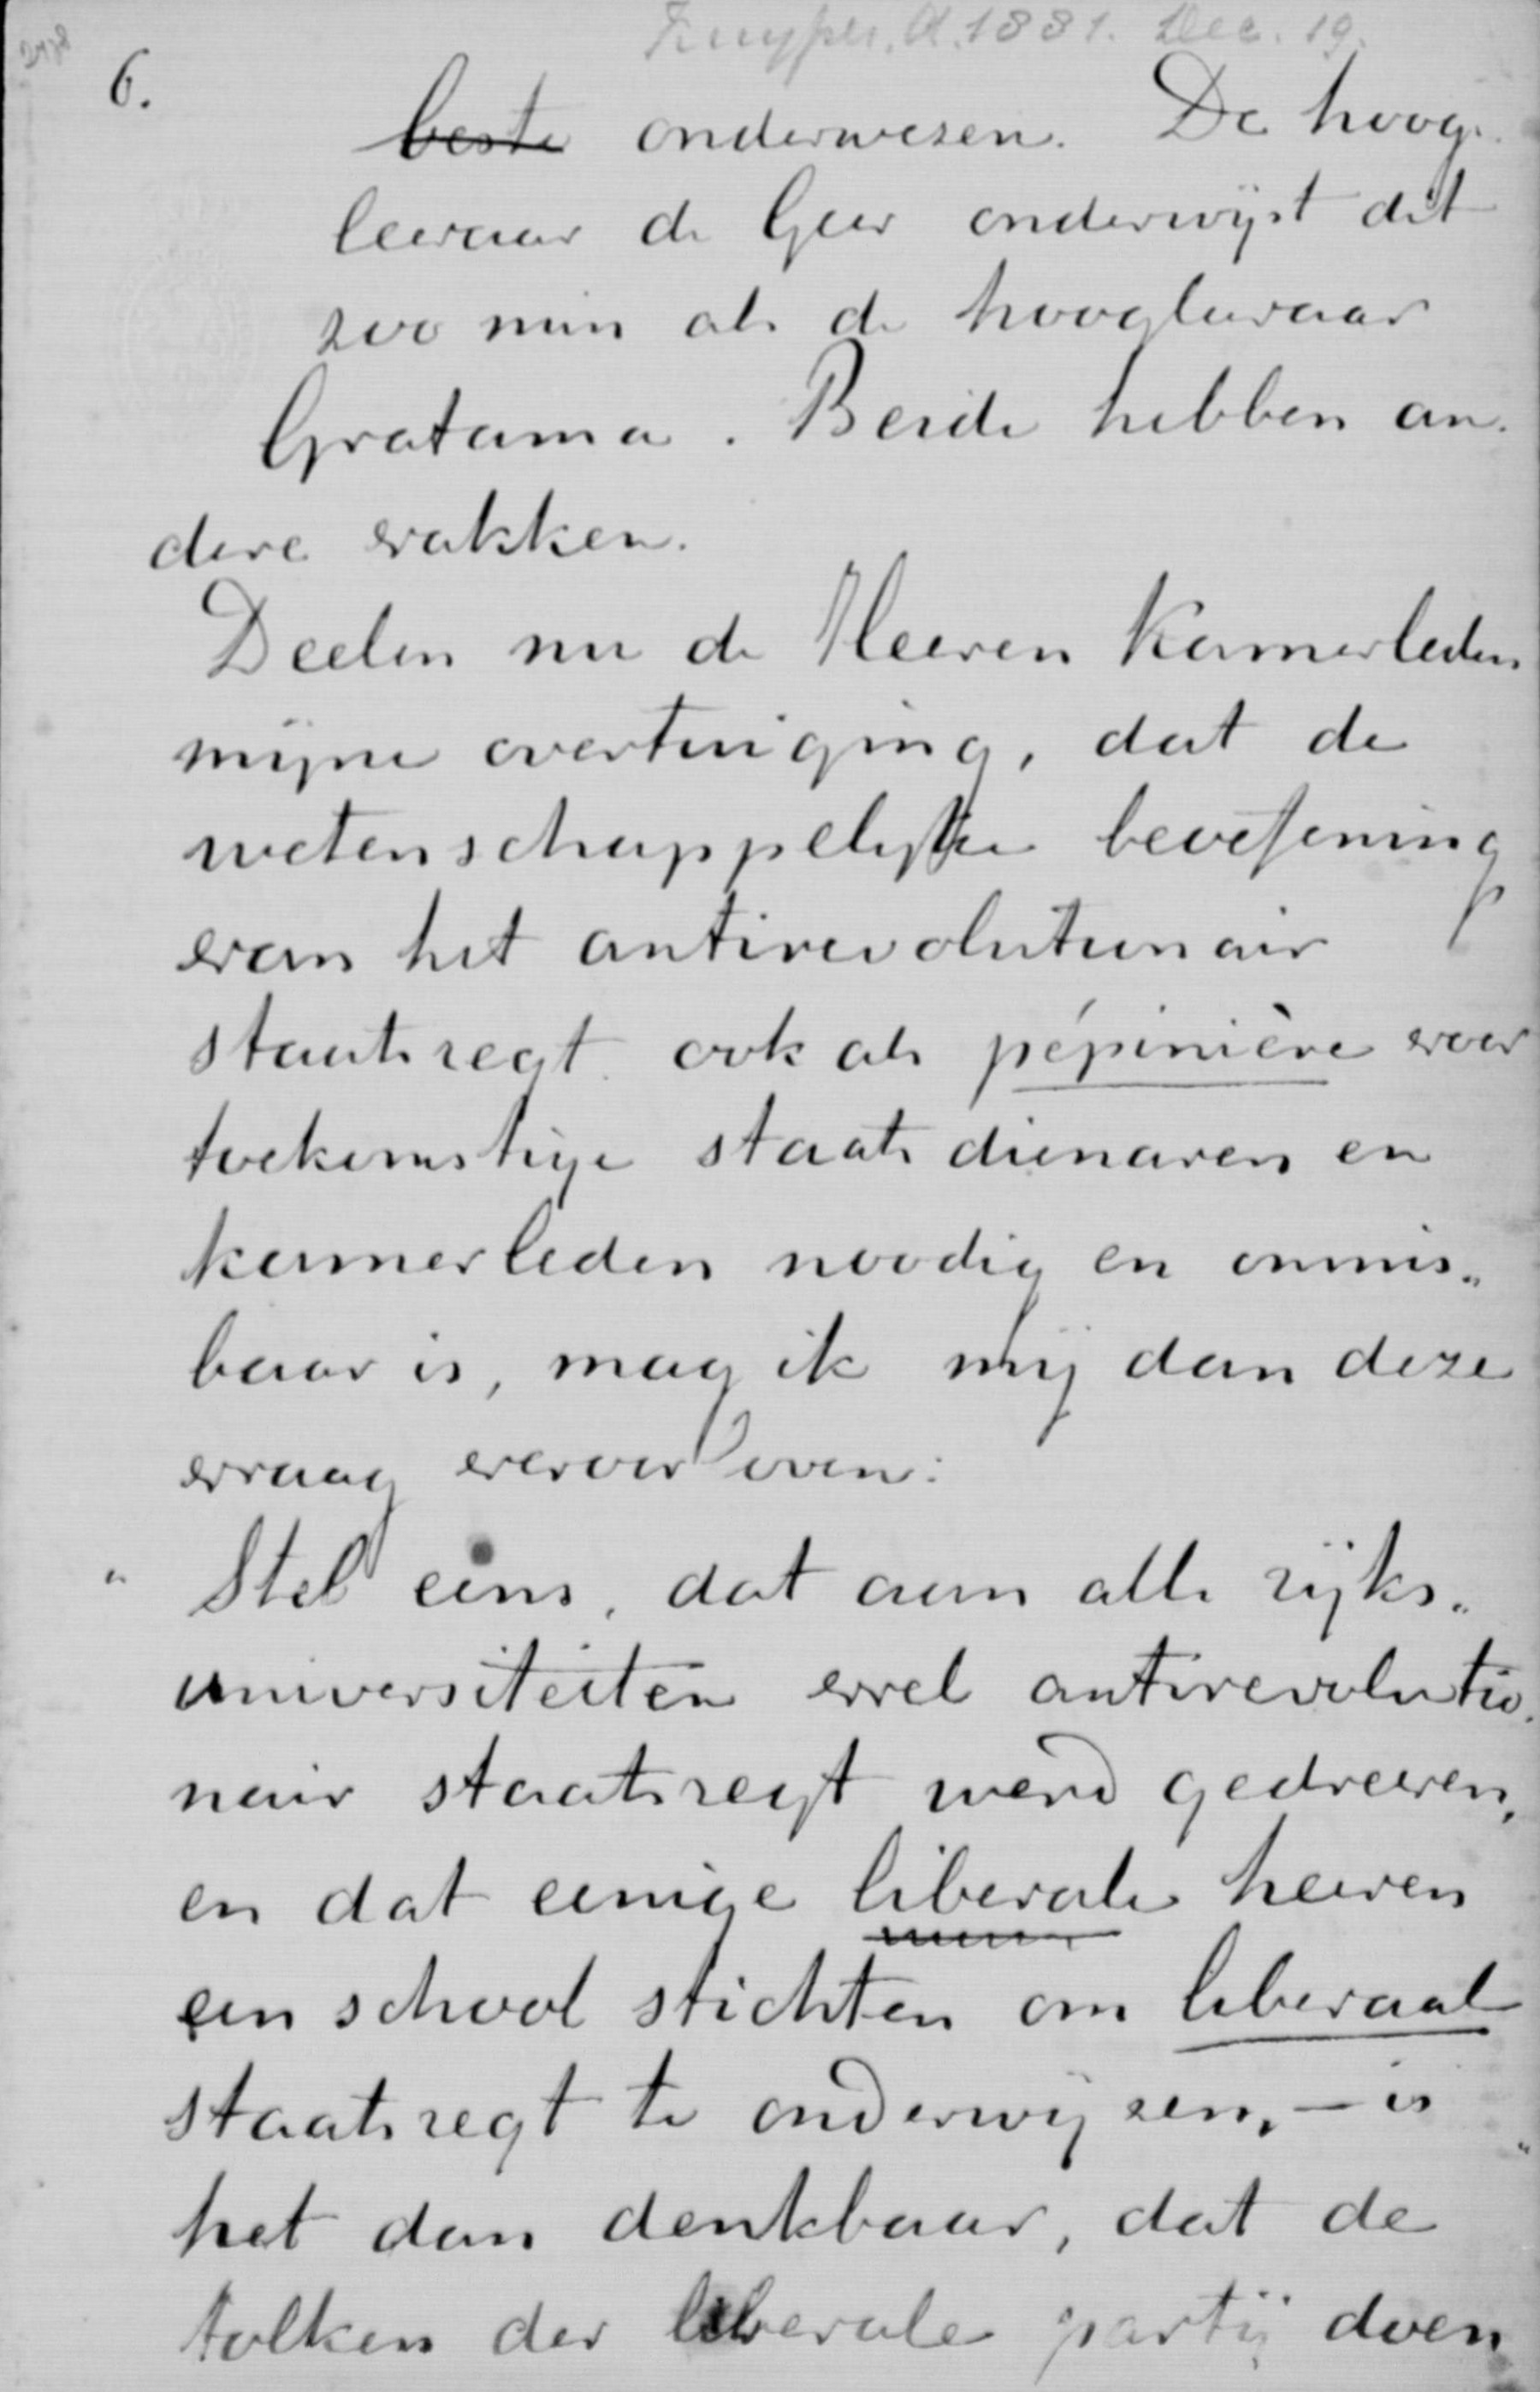 Kuyper, A. 1881. Dec. 19.
6.
beste onderwezen. De hoog-
leeraar de Geer onderwijst dit
zoo min als de hoogleeraar
Gratama. Beide hebben an-
dere vakken.
Deelen nu de Heeren Kamerleden
mijne overtuiging, dat de
wetenschappelijke beoefening
van het antirevolutionair
staatsregt ook als pépinière voor
toekomstige staatsdienaren en
kamerleden noodig en onmis„
baar is, mag ik mij dan deze
vraag veroorloven:
„ Stel eens, dat aan alle rijks„
universiteiten wel antirevolutio-
nair staatsregt werd gedreven,
en dat eenige liberale heeren
een school stichten om liberaal
staatsregt te onderwijzen, — is
het dan denkbaar, dat de
tolken der liberale partij doen